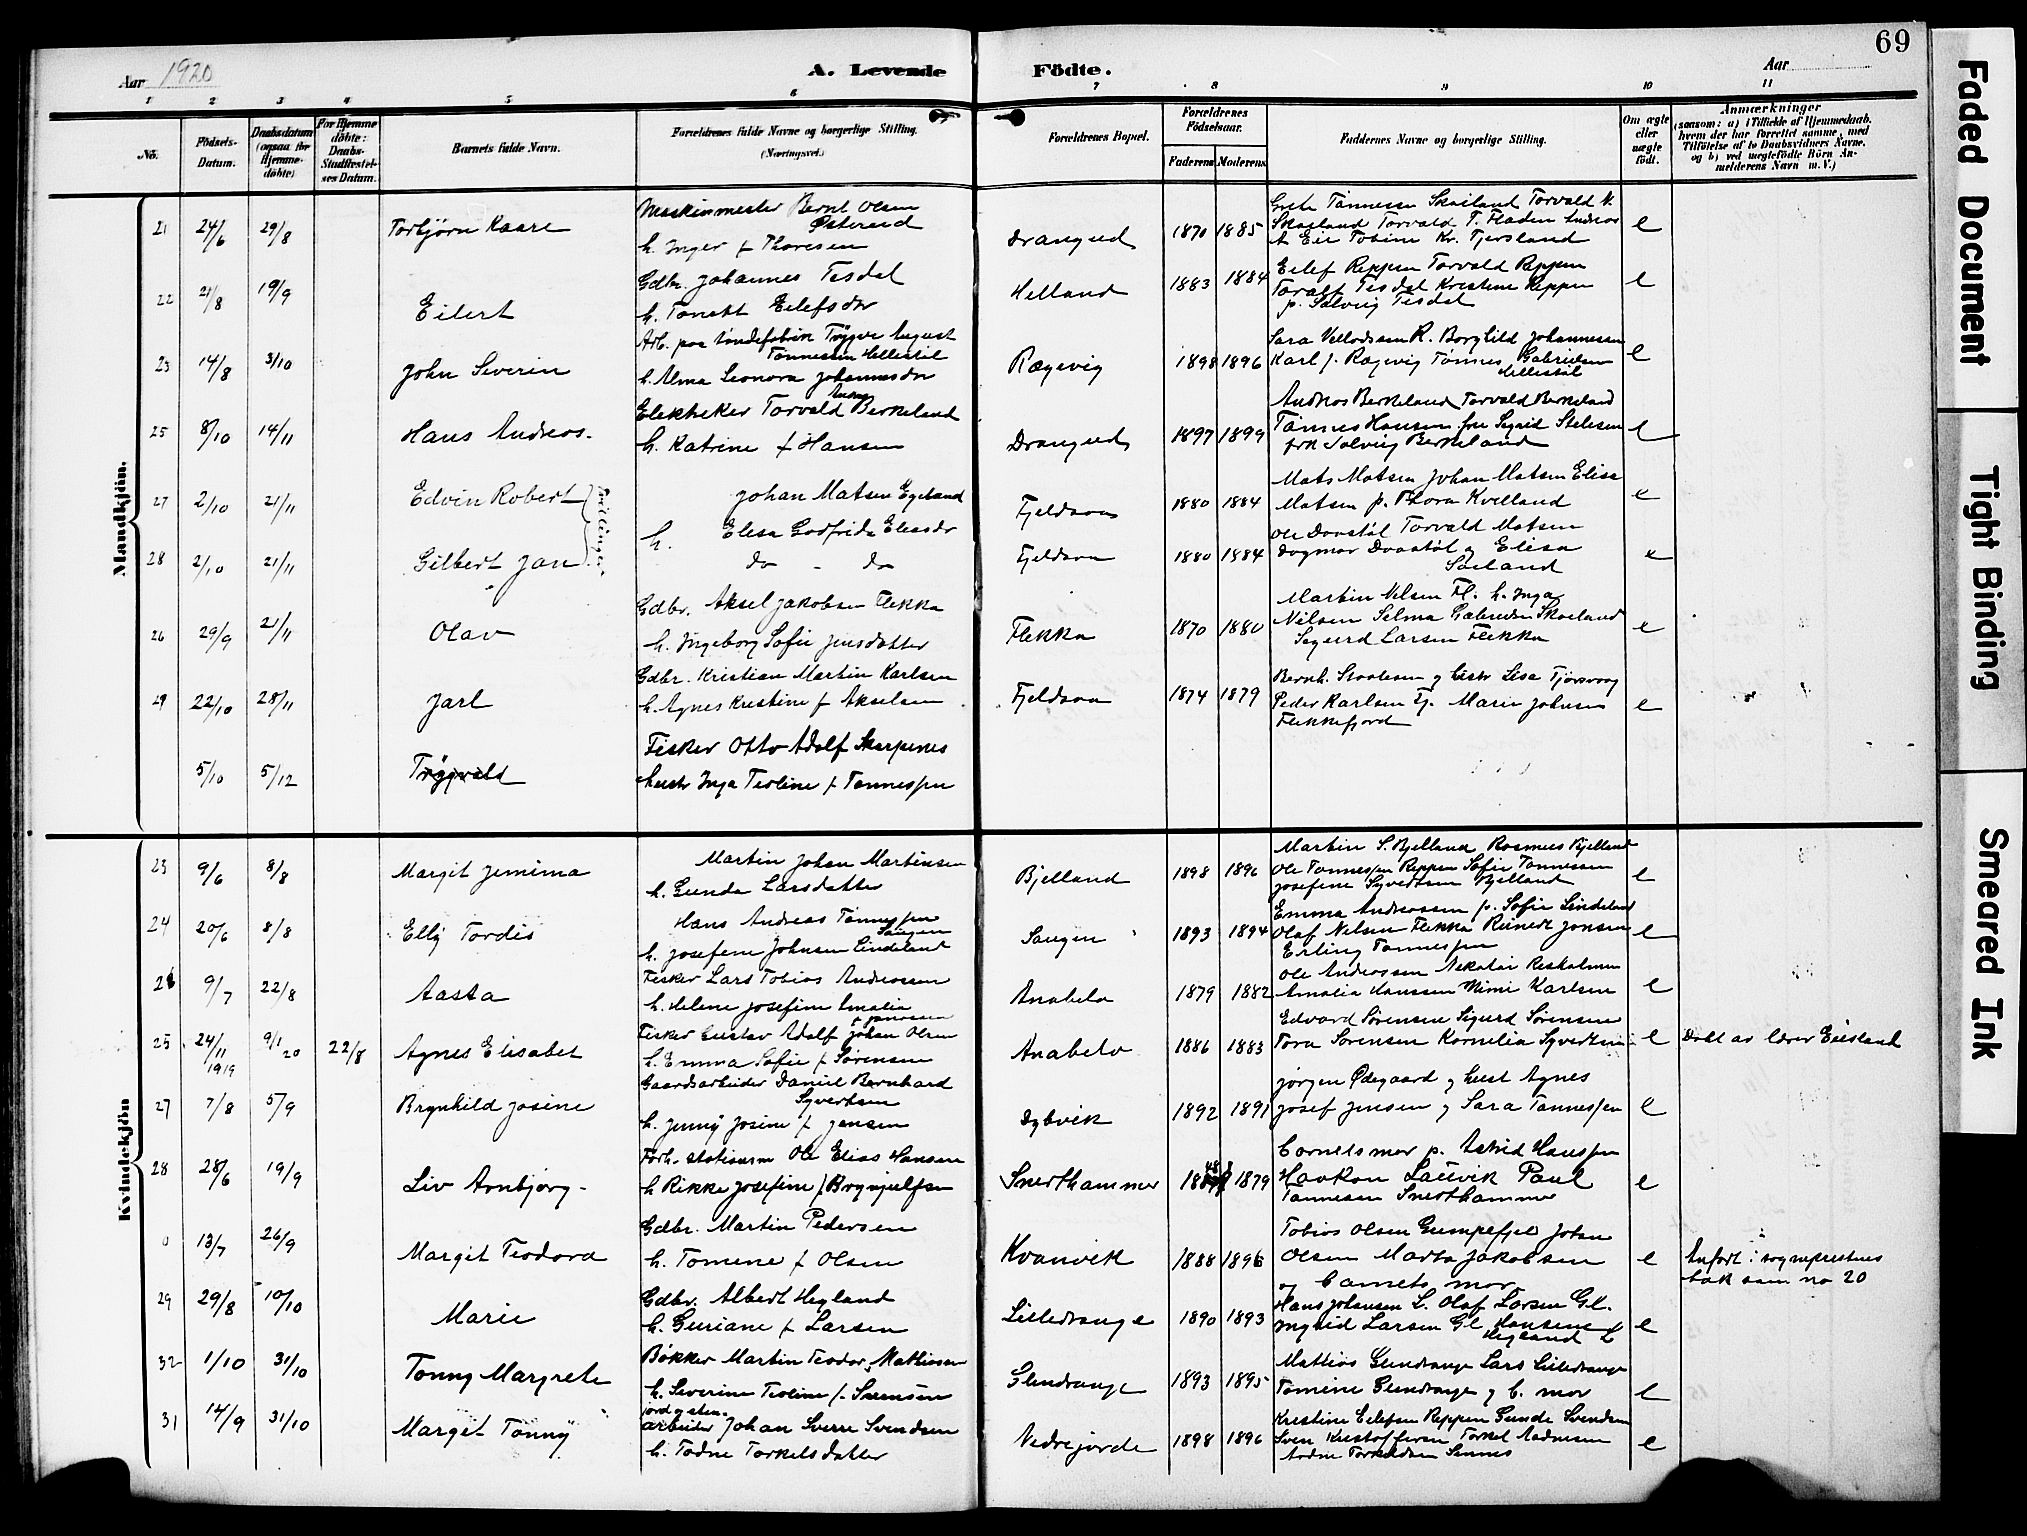 69
Aar 1920
A. Levende Födte.
Aar
1 2 3 4 5 6 7 8 9 10 11
No.
Födsels-Datum.
Daabsdatum (ogsaa for Hjemme-döbte)
For Hjemme döbte: Daabs-Stadfæstelses Datum.
Barnets fulde Navn.
Forældrenes fulde Navne og borgerlige Stilling. (Næringsvei.)
Forældrenes Bopæl.
Forældrenes Födselsaar.
Faderens Moderens
Faddernes Navne og borgerlige Stilling.
Om ægte eller uægte födt.
Anmærkninger
(saasom: a) i Tilfælde af Hjemmedaab, hvem der har forrettet samme, med Tilföielse af to Daabsvidners Navne, og b) ved uægtefödte Börn Anmelderens Navn m. V.)
Mandkjön.
21 24/6 29/8 Torbjørn Kaare
Maskinmester Bernt Olsen Østerud
h. Inger f Thoresen
Drangeid 1870 1885
Grete Tønnessen Skailand Torvald
Skailand Torvald T. Fladen Andreas
Eie Tobine Kr. Tjersland
e
22 21/8 19/9 Eilert
Gdbr. Johannes Tesdal
h. Tonette Eilefsdr
Helland 1883 1884
Eilef Reppen Torvald Reppen
Toralf Tesdal Kristine Reppen
p. Solveig Tesdal
e
23 14/8 3/10 John Severin
Arb. paa tøndefabrik Trygve August
Tønnessen Hellestøl
h. Alma Leonora Johannesdr
Rægevig 1898 1896
Sara R. Borghild Johannessen
Karl J. Rægevig Tønnes Gabrielsen
Hellestøl
e
25 8/10 14/11 Hans Andreas.
Elektriker Torvald Berkeland
h. Katrine f Hansen
Drangeid 1897 1899
Andreas Berkeland Torvald Berkeland
Tønnes Hansen fru Sigrid Stelesen
frk Solveig Berkeland
e
27 2/10 21/11 Edvin Robert
tvillinger
Johan Matsen Egeland
h. Elisa Godfrida Eleasdr
Fjeldsaa 1880 1884
Mats Matsen Johan Matsen Elisa
Matsen p. Thora Kvelland
e
28 2/10 21/11 Gilbert Jan
do - do
Fjeldsaa 1880 1884
Ole Dovstøl Torvald Matsen
Dagmar Dovstøl og Elisa
Søeland
e
26 29/9 21/11 Olav
Gdbr. Aksel Jakobsen Flekka
h. Ingeborg Sofie Jensdatter
Flekka 1870 1880
Martin Nilsen Fl. h. Inga
Nilsen Selma Gabrielsen Skoeland
Sigurd Larsen Flekka
e
29 22/10 28/11 Jarl
Gdbr. Kristian Martin Karlsen
h. Agnes Kristine f Akselsen
Fjeldsaa 1874 1879
Bernh. Staalesen og hustr Lisa Tjørsvaag
Peder Karlsen Fj. Marie Johnsen
Flekkefjord
e
5/10 5/12 Trygvald
Fisker Otto Adolf Skarpenes
hustr Inga Teoline f Tønnessen
Kvindekjön
23 9/6 8/8 Margit Jemima
Martin Johan Martinsen
h. Gunda Larsdatter
Bjelland 1898 1896
Martin S. Bjelland Rasmus Bjelland
Ole Tønnessen Reppen Sofie Tønnessen
Josefine Syvertsen Bjelland
e
24 20/6 8/8 Elly Tordis
Hans Andreas Tønnessen
Sangen
h. Josefine Johnsen Lindeland
Sangen 1893 1894
Emma Andreassen p. Sofie Lindeland
Olaf Nelsen Flekka Reinert Jonsen
Erling Tønnessen
e
26 9/7 22/8 Aasta
Fisker Lars Tobias Andreassen
h. Helene Josefine Amalia
f Jonassen
Anabelø 1879 1882
Ole Andreassen Nekolai Resholmen
Amalia Hanssen Mimi Karlsen
e
25 24/11 1919 9/1 20 22/8 Agnes Elisabet
Fisker Gustav Adolf Johan Olsen
h. Emma Sofie f Sørensen
Anabelø 1886 1883
Edvard Sørensen Sigurd Sørensen
Tora Sørensen Kornelia Syvertsen
e Døbt av lærer Eiesland
27 7/8 5/9 Brynhild Josine
Gaardsarbeider Daniel Bernhard
Syvertsen
h. Jenny Josine f Jensen
Dybvik 1892 1891
Jørgen Ødegaard og hust Agnes
Josef Jensen og Sara Tønnessen
e
28 28/6 19/9 Liv Arnbjørg.
Forh. Ole Elias Hansen
h Rikke Josefine f Brynjulfsen
Snerthammer 1879
Barnets mor p. Astrid Hanssen
Haakon Lauvik Paul
Tønnesen Snerthammer
e
13/7 26/9 Margit Teodora
Gdbr. Martin Pedersen
h. Tomine f Olsen
Kvanvik 1888 1896
Tobias Olsen Gumpefjel Johan
Olsen Marta Jakobsen
og barnets mor
e Anført i sogneprestens
bok som no 20
29 29/8 10/10 Marie
Gdbr. Albert Hegland
h. Guriane f Larsen
Lilledrange 1890 1893
Hans Johansen L. Olaf Larsen Gl.
Ingrid Larsen Gl Hansine
Hegland L
e
32 1/10 31/10 Tonny Margrete
Bøkker Martin Teodor Mathiassen
h. Severine Teoline f. Sørensen
Glendrange 1893 1895
Mathias Glendrange Lars Lilledrange
Tomine Glendrange og b. mor
e
31 14/9 31/10 Margit Tonny
jord og sten-
arbeider Johan Sverre Svendsen
h. Todne Torkelsdatter
Nedrejorde 1898 1896
Kristine Eilefsen Reppen Gunda Svendsen
Sven Kristoffersen Torkel Aadnesen
Aadne Torkeldsen Sennes
e
Faded Document
Tight Binding
Smeared Ink